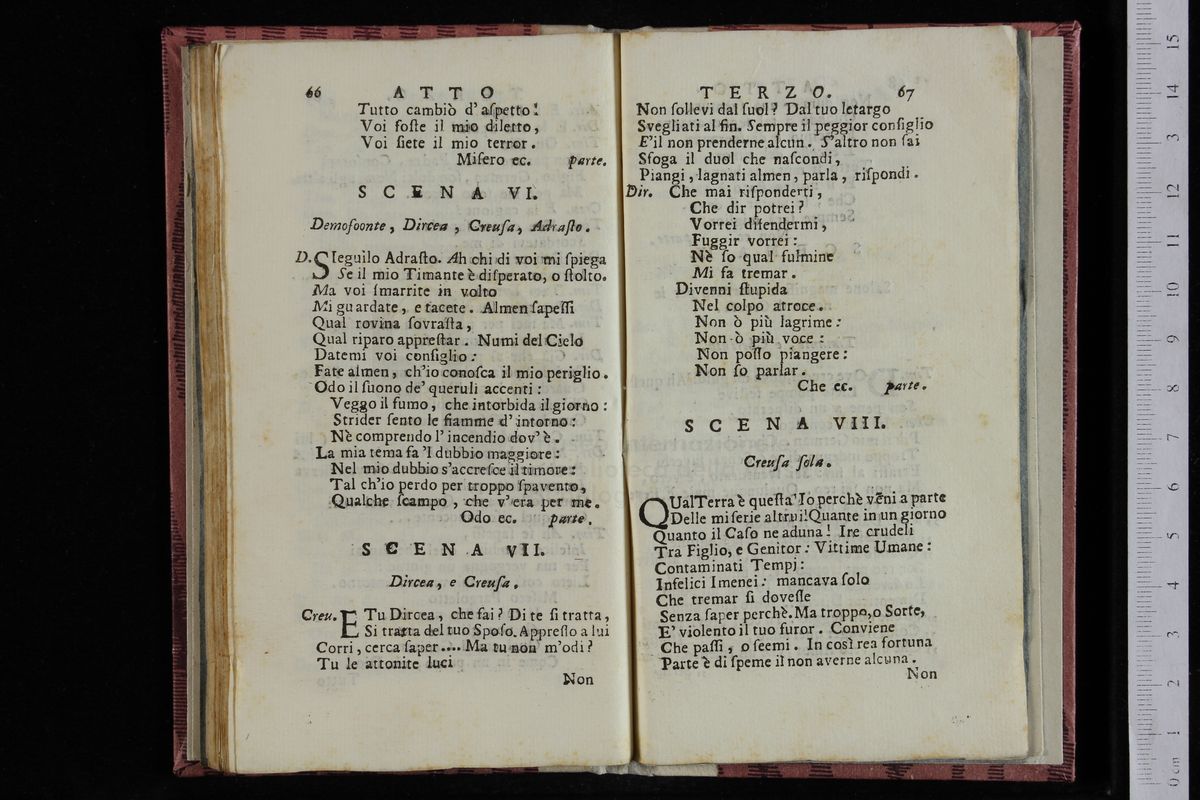 66 ATTO
Tutto cambiò d' aſpetto!
Voi foſte il mio diletto,
Voi ſiete il mio terror.
Miſero ec. parte.
SCENA VI.
Demofoonte, Dircea, Creuſa, Adraſto.
D. SIeguilo Adraſto. Ah chi di voi mi ſpiega
Se il mio Timante è diſperato, o ſtolto.
Ma voi ſmarrite in volto
Mi guardate, e tacete. Almen ſapeſſi
Qual rovina ſovraſta,
Qual riparo appreſtar. Numi del Cielo
Datemi voi conſiglio:
Fate almen, ch'io conoſca il mio periglio.
Odo il ſuono de' queruli accenti:
Veggo il fumo, che intorbida il giorno:
Strider ſento le fiamme d' intorno:
Nè comprendo l' incendio dov' è.
La mia tema fa 'l dubbio maggiore:
Nel mio dubbio s'accreſce il timore:
Tal ch'io perdo per troppo ſpavento,
Qualche ſcampo, che v'era per me.
Odo ec. parte.
SCENA VII.
Dircea, e Creuſa.
Creu. E Tu Dircea, che fai? Di te ſi tratta,
Si tratta del tuo Spoſo. Appreſſo a lui
Corri, cerca ſaper.... Ma tu non m'odi?
Tu le attonite luci
Non
TERZO. 67
Non ſollevi dal ſuol? Dal tuo letargo
Svegliati al fin. Sempre il peggior conſiglio
E' il non prenderne alcun. S'altro non ſai
Sfoga il duol che naſcondi,
Piangi, lagnati almen, parla, riſpondi.
Dir. Che mai riſponderti,
Che dir potrei?
Vorrei difendermi,
Fuggir vorrei:
Nè ſo qual fulmine
Mi fa tremar.
Divenni ſtupida
Nel colpo atroce.
Non ò più lagrime:
Non ò più voce:
Non poſſo piangere:
Non ſo parlar.
Che ec. parte.
SCENA VIII.
Creuſa ſola.
QUal Terra è queſta! Io perchè vēni a parte
Delle miſerie altrui! Quante in un giorno
Quanto il Caſo ne aduna! Ire crudeli
Tra Figlio, e Genitor: Vittime Umane:
Contaminati Tempj:
Infelici Imenei: mancava ſolo
Che tremar ſi doveſſe
Senza ſaper perchè. Ma troppo, o Sorte,
E' violento il tuo furor. Conviene
Che paſſi, o ſcemi. In così rea fortuna
Parte è di ſpeme il non averne alcuna.
Non
0 cm 1 2 3 4 5 6 7 8 9 10 11 12 13 14 15